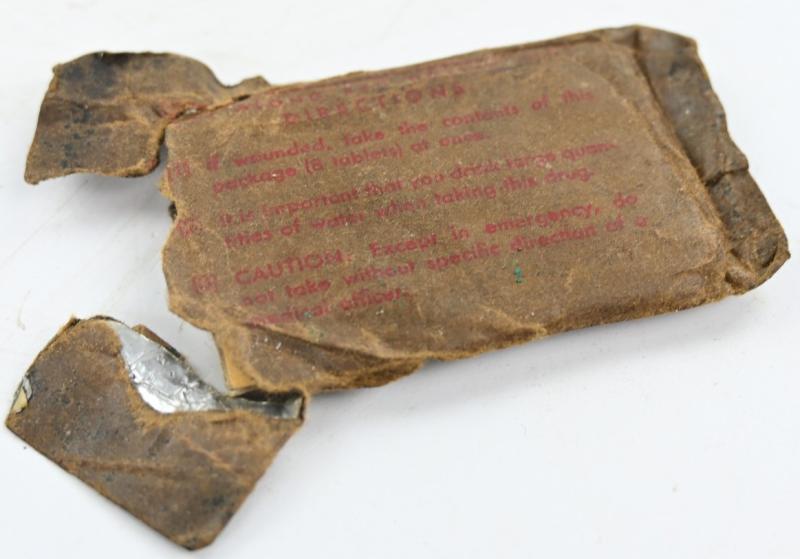 DIRECTIONS
(1) If wounded, take the contents of this
package (8 tablets) at once.
(2) It is important that you drink large quan-
tities of water when taking this drug.
(3) CAUTION: Except in emergency, do
not take without specific direction of a
medical officer.